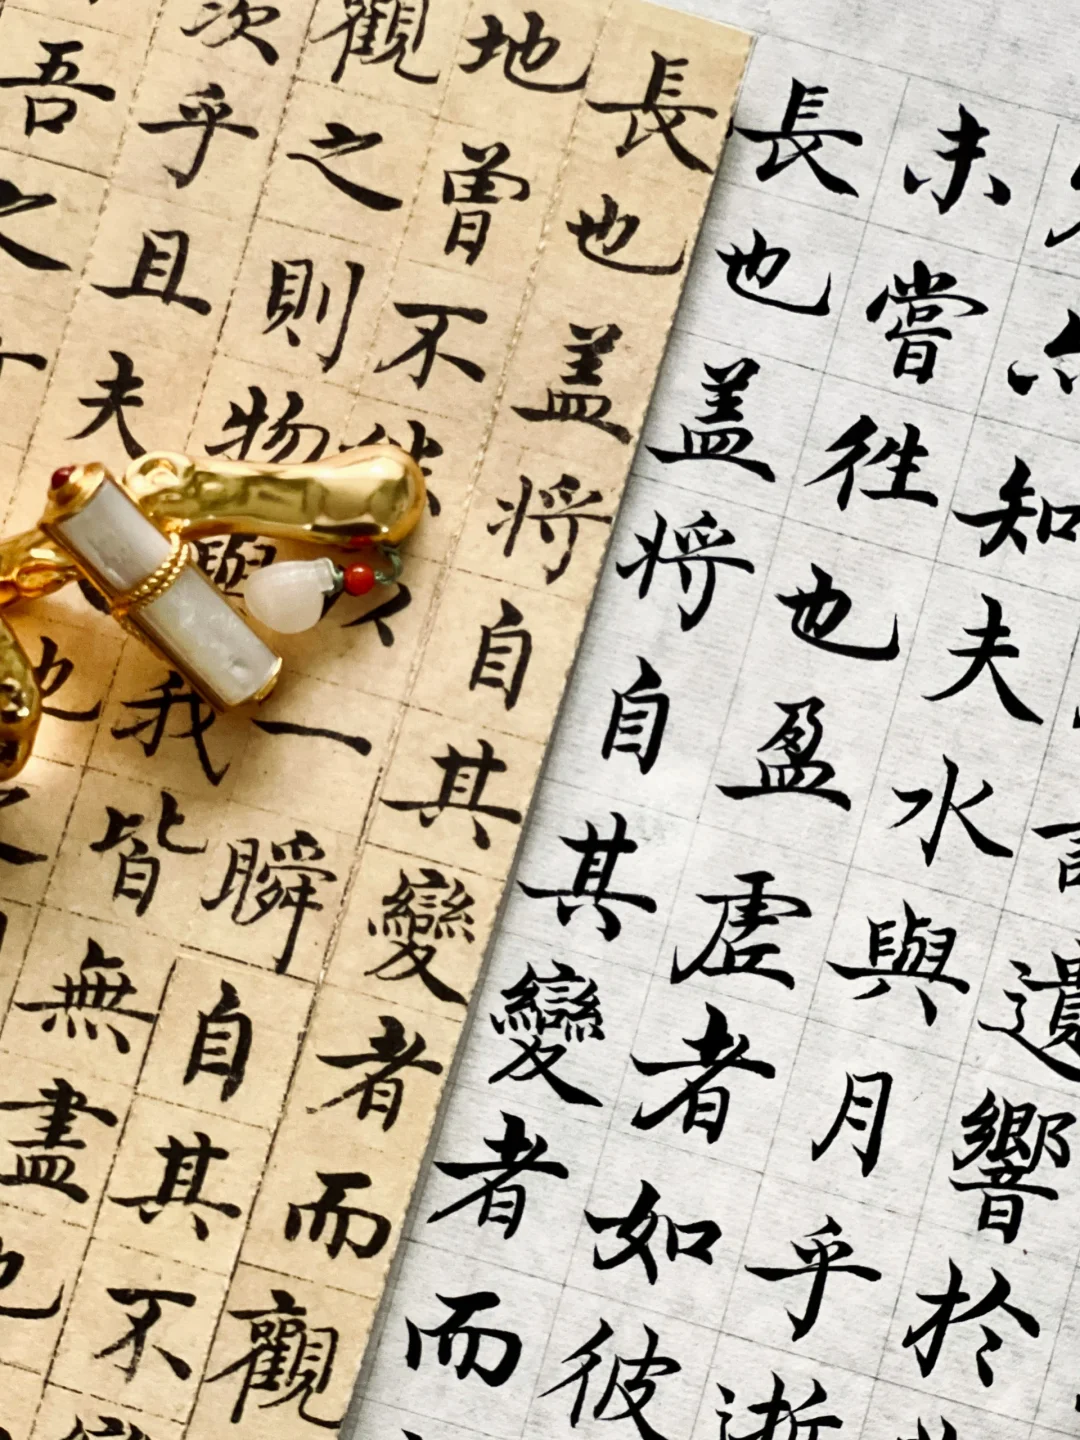 遺響於
知夫水與月乎逝
未嘗往也盈虛者如彼
長也盖將自其變者而
長也盖將自其變者而觀
地曾不能以一瞬自其不變
觀之則物與我皆無盡也
羨乎且夫
吾之